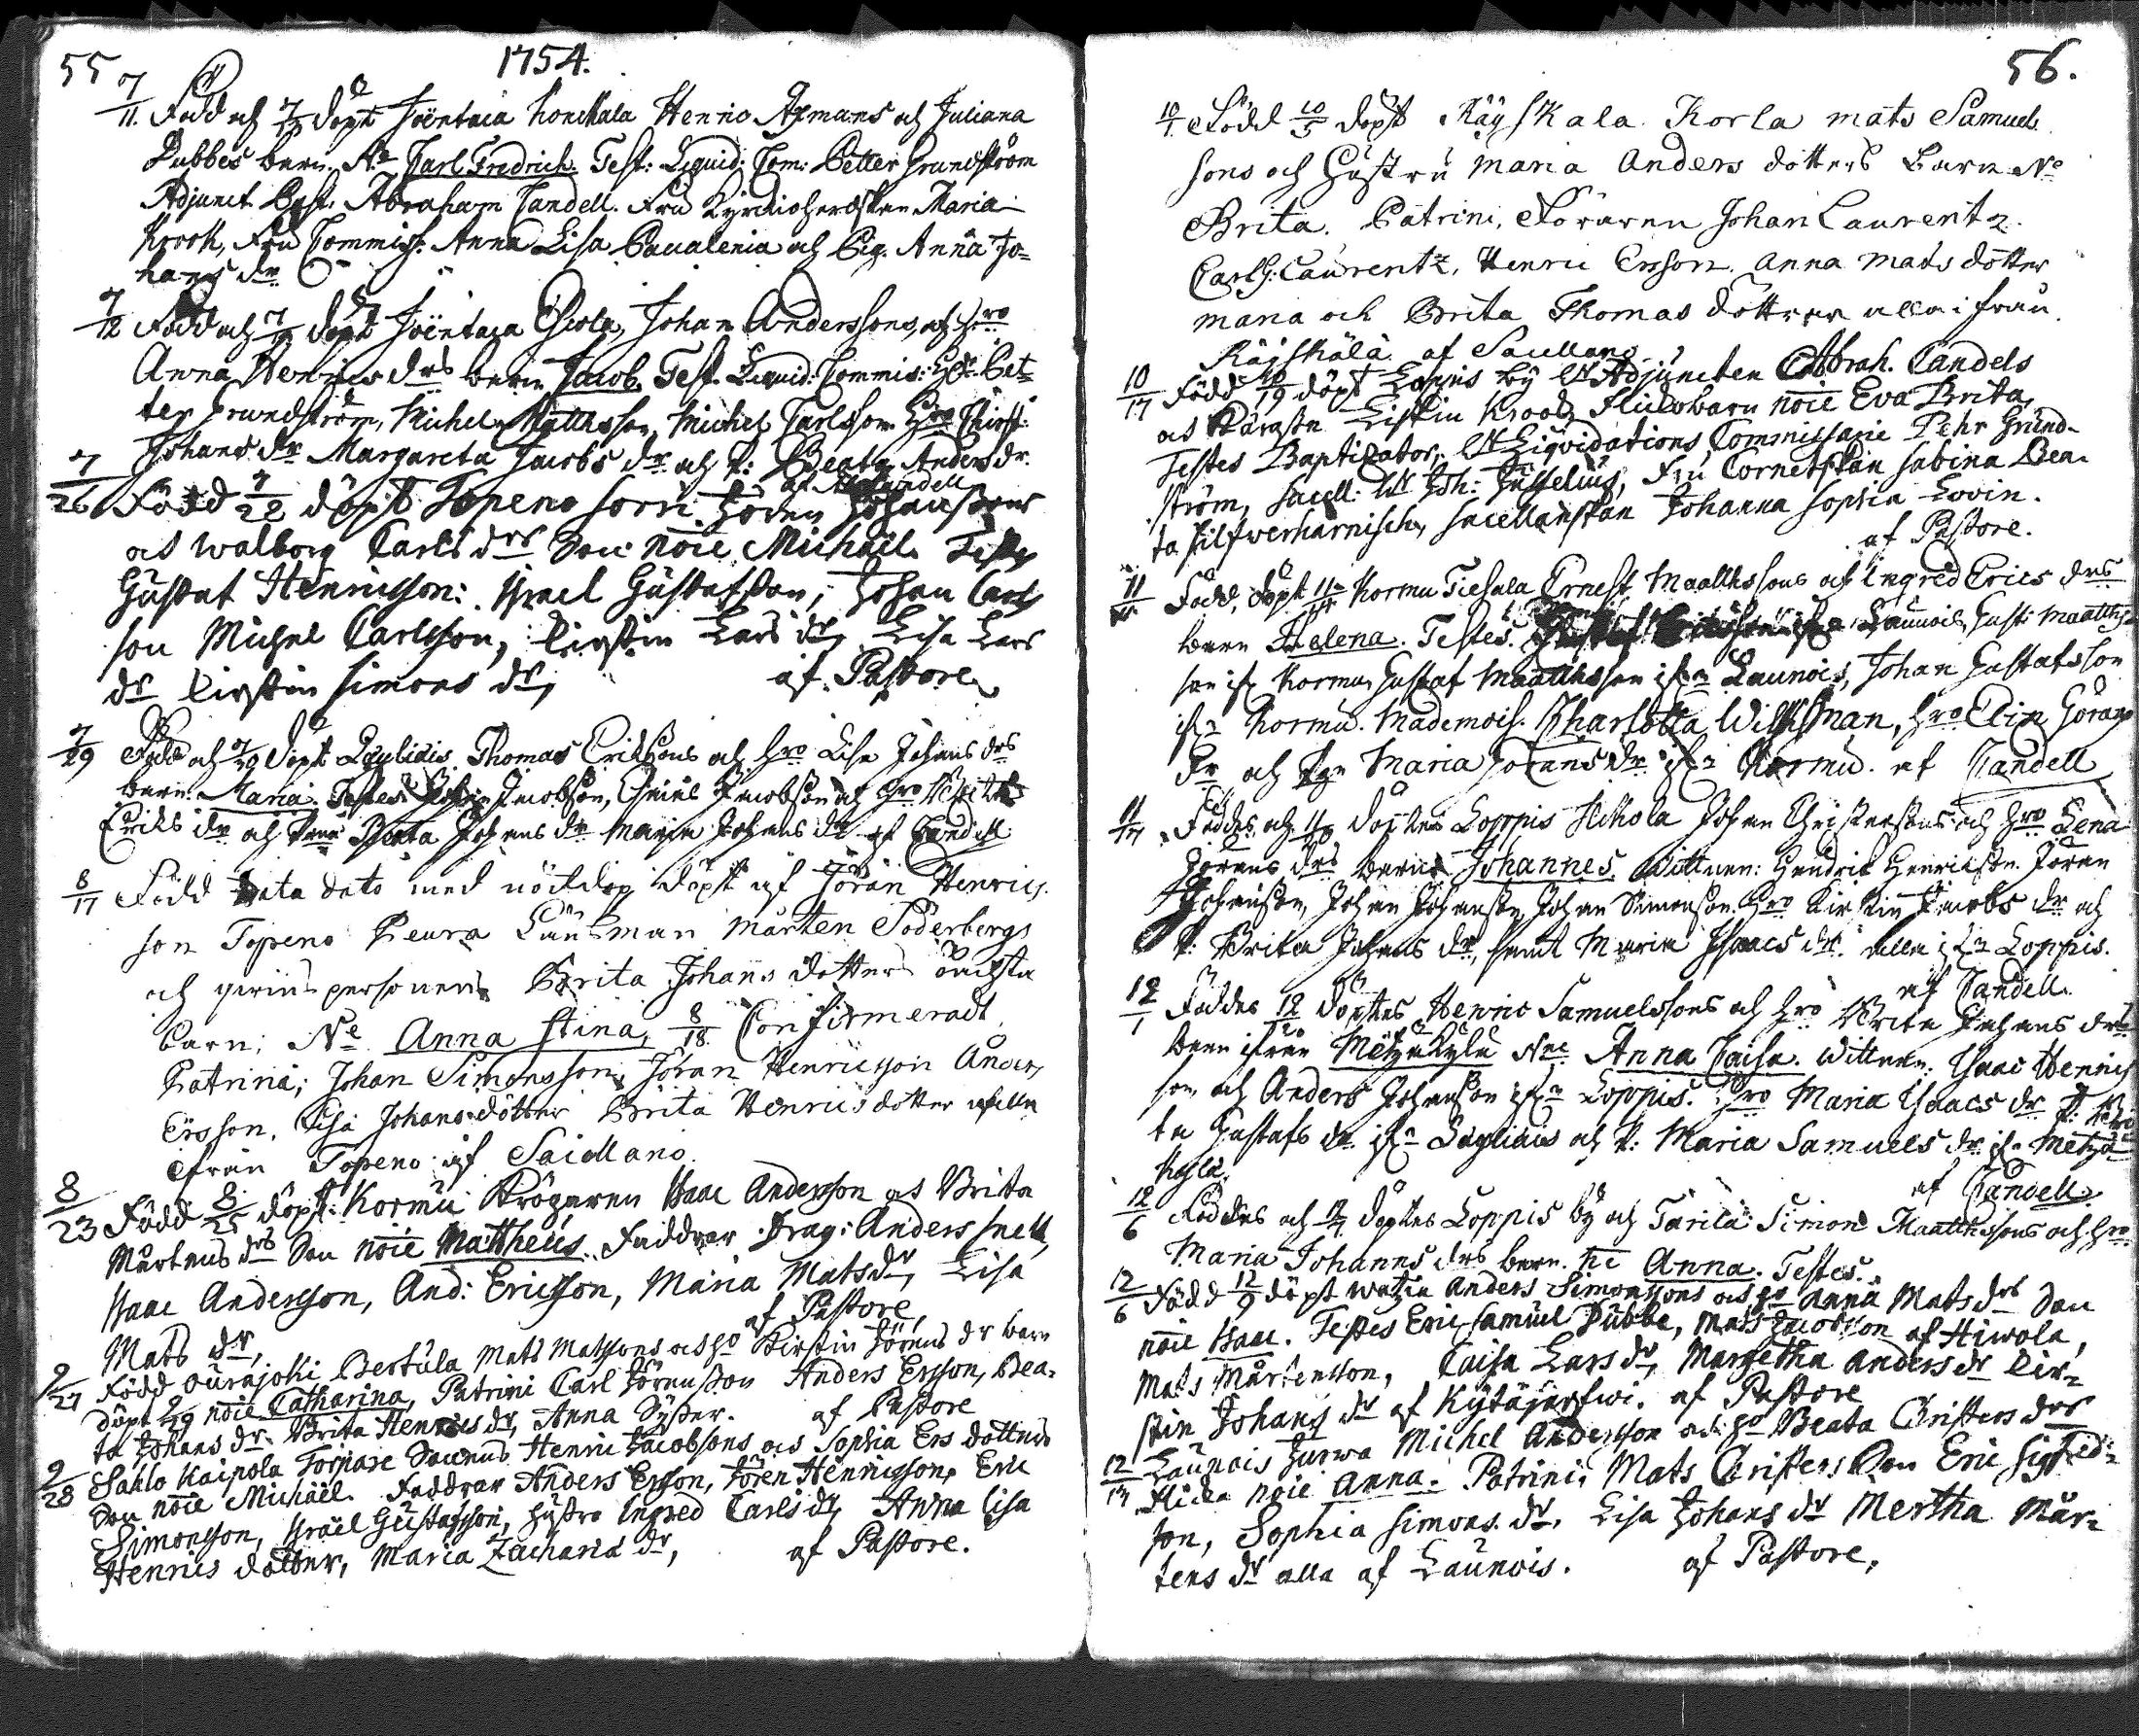 55
1754.
7/11. Född och 7/ döpt Joëntaca Honckala Henric Axmans och Juliana
Dubbes barn. Ne Carl Fredrich. Test: Liquid: Com: Petter Grundström
Adjunct. Past. Abraham Candell. Fru Kyrckioherdskan Maria
Krook, Fru Commiss: Anna Lisa och Pig. Anna Jo=
hans dr
7/12 Född och 7/ döpt Joëntaca Johan Anderssons och hro
Anna Henrics drs barn Jacob. Test. Liquid: Commis: Hr Pet=
ter Grundström, Michel Matthsson, Michel Carlsson hro Christ:
Johans dr Margareta Jacobs dr och P: Beata Anders dr.
af Candell
7/26 Född 7/28 döpt Topeno Sorri Jören Johanssons
och Walborg Carls drs Son noie Michaël. Testes
Gustaf Henricsson: Israel Gustafsson, Johan Carls
son Michel Carlsson, Kirstin Lars dr, Lisa Lars
dr Kirstin Simons dr, af. Pastore
7/29 Född och 7/29 döpt Läyliäis Thomas Erikssons och hro Lisa Johans drs
barn. Maria. Testes Johan Jacobson, Jacobson och hro
Eriks dr och Beata Johans dr Maria Johans dr af Candell
8/17 Född data dato med nöddop döpt af Jöran Henrics
son Topeno Peura Länsman Mårten Söderbergs
och qwins personens Brita Johans dotters oäckta
barn; Ne Anna Stina, 8/18. Confirmeradt
Patrina; Johan Simonsson, Jöran Henricsson Anders
Ersson. Lisa Johans dotter Brita Henrics dotter alla
ifrån Topeno af Sacellano.
8/23 Född 8/25 döpt: Kormu Krögaren Isaac Andersson och Brita
Mårtens drs Son noie Mattheus. Faddrar Drag: Anders Snell,
Isaac Andersson, And: Ericsson, Maria Mats dr, Lisa
Mats dr, af Pastore,
9/27 Född Ourajoki Bertula Mats Matssons och ho Kirstin Jörens dr barn
döpt 9/29 noie Catharina, Patrini Carl Jörensson Anders Ersson, Bea=
ta Johans dr Brita Henrics dr, Anna af Pastore
9/28 Sahlo Kaipola Torpare Henric Jacobsons och Sophia Ers dotters
Son noie Michaël. Faddrar Anders Ersson, Jören Henricsson, Eric
Simonsson, Israël Gustafsson, hustro Ingred Carls dr, Anna Lisa
Henrics dotter, Maria Zacharia dr, af Pastore.
56.
10/1 Född 10/5 döpt Räyskala Korla Mats Samuels
sons och hustru Maria Anders dotters barn Ne
Brita. Patrini, Föraren Johan Laurentz
Carl G: Laurentz, Henric Ersson. Anna Mats dotter
Maria och Brita Thomas döttrar alla ifrån
Räyskälä af Sacellano
10/17 Född 10/19 döpt Loppis by Hr Adjuncten Abrah. Candels
och Kärasta Liskin Krook Flickobarn noie Eva Brita,
Testes Baptizator, Hr Liqvidations Commissarie Pehr Grund=
ström, Sacell: Hr Joh: Jusselius, Fru Cornetskan Sabina Bea=
ta Silfwerharnisch, Sacellanskan Johanna Sophia Lovin.
af Pastore.
11/ Född, döpt 11/ Kormu Tiehala Ernest Maatthssons och Ingred Erics drs
barn Helena. Testes. Launois, Gust: Maatths
son ifn Kormu, Gustaf Maatthsson ifn Launois, Johan Gustafsson
ifn Kormu. Mademois. Charlotta Wilckman, hro Elin Görans
dr och Pgn Maria Görans dr ifn Kormu. af Candell
11/17 Föddes och 11/ döptes Loppis Johan Christerssons och hro Lena
Jörens drs barn Johannes. Wittnen: Hendrik Henriksson Jören
Johansson, Johan Johansson Johan Simonson. hro Kirstin Jacobs dr och
P: Brita Johans dr, samt Maria Isaacs dr. alla ifn Loppis.
af Candell.
12/1 Föddes 12/2 döptes Henric Samuelssons och hro Brita Johans drs
barn ifrån Metzäkylä Ne Anna Caisa. Wittnen. Isaac Henrics
son och Anders Johansson ifn Loppis. hro Maria Isaacs dr P: Bri
ta Gustafs dr ifn Läyliäis och P: Maria Samuels dr ifn Metzä
kylä. af Candell.
12/6 Föddes och 12/7 döptes Loppis by och Tarila Simon Maatthssons och hro
Maria Johanns drs barn. Ne Anna. Testes.
12/6 Född 12/9 döpt Watzia Anders Simonssons och ho Anna Mats drs Son
noie Isaac. Testes Eric Samuel Dubbe, Mats Jacobsson af Hiwola,
Mats Mårtensson, Caisa Lars dr, Margetha Anders dr Kir=
stin Johans dr af Kytäjärfwi. af Pastore
12/13 Launois Jurwa Michel Andersson och ho Beata Christers drs
Flicka noie Anna. Patrini, Mats Christersson Eric Sigfrids=
son, Sophia Simons dr, Lisa Johans dr Mertha Mår=
tens dr alla af Launois. af Pastore,